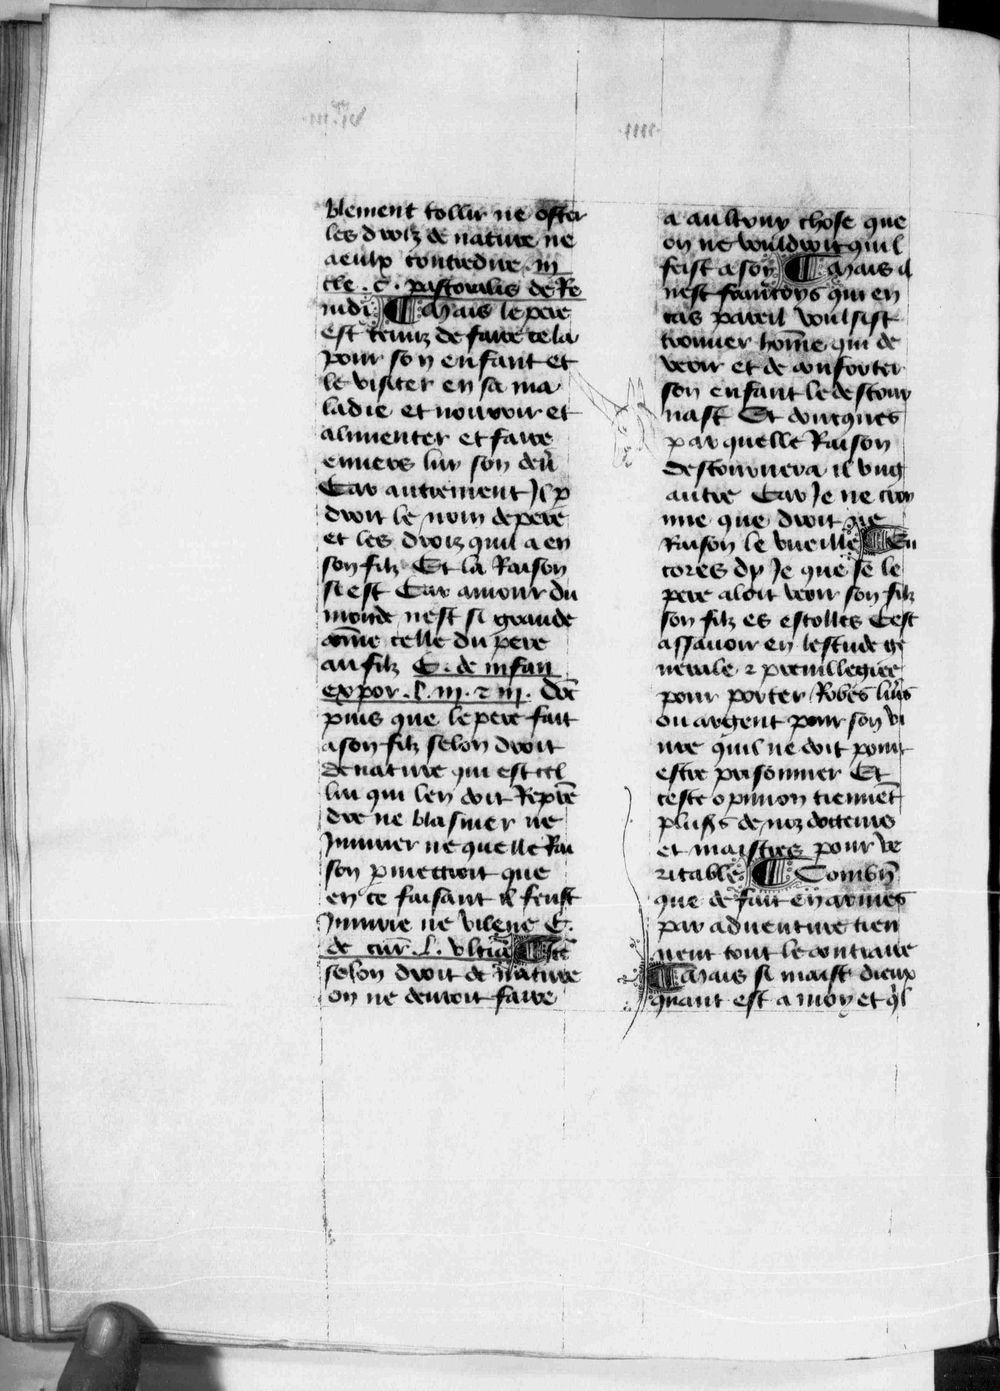 blement tollir ne oster
les droiz de nature ne
a eulx contredire. in
cle. c. pastoralis de Re
iudi. ¶ Mais le pere
est tenuz de faire cela
pour son enfant et
le visiter en sa ma
ladie et nourrir et
alimenter et faire
enuers luy son deu
Car autrement Il p̱
droit le nom de pere
et les droiz quil a en
son filz Et la Raison
si est Car amour du
monde nest si grande
cōme celle du pere
au filz C. de infan
expor. l. ii. z iii. Dōc
puis que le pere fait
a son filz selon droit
de nature qui est cel
lui qui len doit Repre
dre ne blasmer ne
Iniurier ne quelle Rai
son p̱mectroit que
en ce faisant il feust
Iniurie ne vilene C.
de cur̄. l. vltīa ¶ Et
selon droit de nature
on ne deuroit faire
a aultruy chose que
on ne vouldroit quil
feist a soy ¶ Mais il
nest francoys qui en
cas pareil voulsist
trouuer hōme qui de
veoir et de conforter
son enfant le destour
nast Et doncques
par quelle Raison
destournera il vng
autre Car Ie ne croy
mie que droit ne
Raison le vueille ¶ En
cores dy Ie que se le
pere aloit veoir son filz
son filz es escolles Cest
assauoir en lestude ge
nerale z preuillegiee
pour porter Robes liurs
ou argent pour son vi
ure quil ne doit point
estre prisonnier Et
ceste opinion tiennēt
plus͛s de noz docteurs
et maistres pour ve
ritable ¶ Combn̄
que de fait en armes
par aduenture tien
nent tout le contraire
¶ Mais si maist dieux
quant est a moy et ql̄